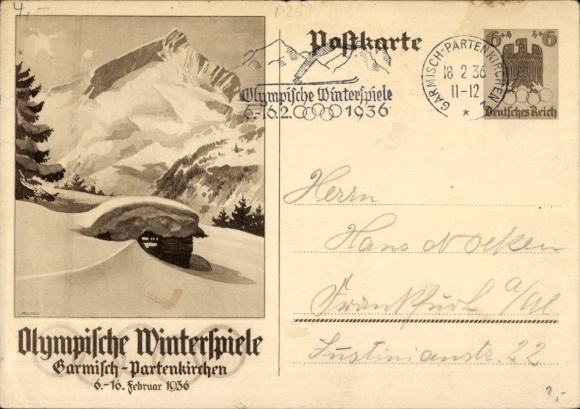 4,-
Postkarte
6+4 4+6
Deutsches Reich
GARMISCH-PARTENKIRCHEN
18.2.36
11-12
Olympische Winterspiele
6.-16.2. 1936
Herrn
Hans Noeken
Frankfurt a/M
Justinianstr. 22
Olympische Winterspiele
Garmisch-Partenkirchen
6.-16. Februar 1936
?,-